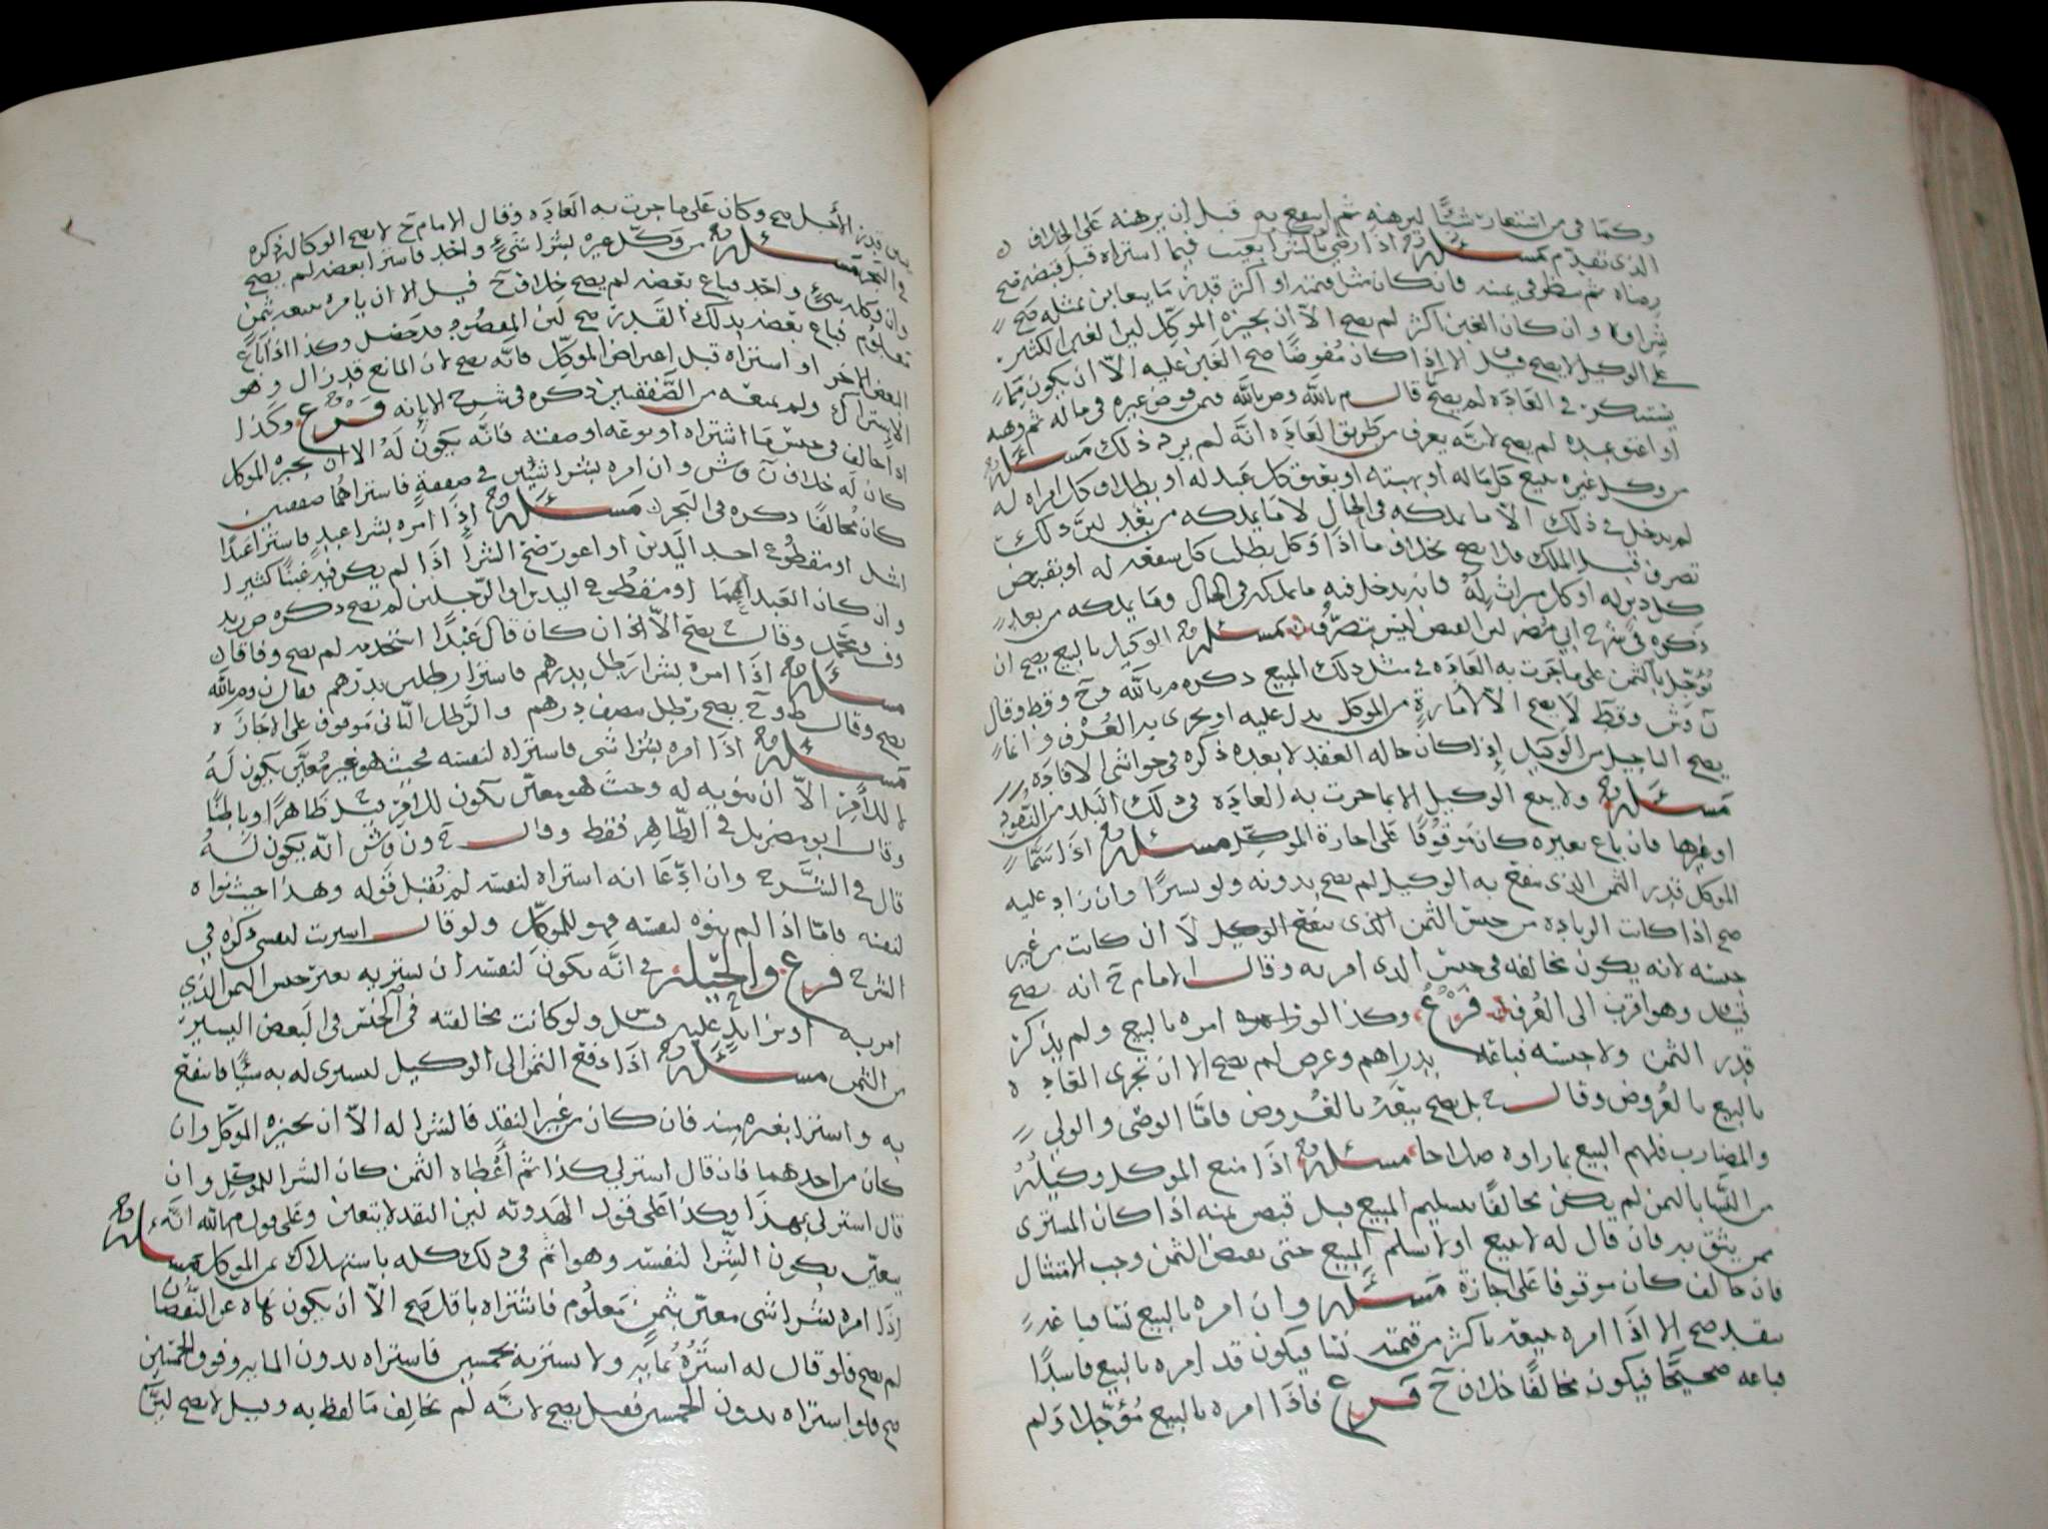 وكما في من استعار شيئا ليرهنه ثم انتفع به قبل ان يرهنه على الخلاف
الذي تقدم مسئلة اذا رضي بالشرا بعيب فيما اشتراه قبل قبضه صح
رضاه ثم ينظر في ثمنه فان كان مثل قيمته او اكثر قدر ما يتغابن بمثله صح
شراوه وان كان الغبن اكثر لم يصح الا ان يجيزه الموكل لين الغبن الكثير
على الوكيل لا يصح وقيل الا اذا كان مفوضا صح الغبن عليه الا ان يكون مما
يستنكر في العادة لم يصح قال م بالله وص بالله فمن فوض غيره في ماله ثم وهبه
او اعتق عبده لم يصح لانه يعرف من طريق العادة انه لم يرد ذلك مسئلة
من وكل غيره ببيع كل ماله او بهبته او بعتق كل عبد له او بطلاق كل امراة له
لم يدخل في ذلك الا ما يملكه في الحال لا ما يملكه من بعد لين ذلك
تصرف قبل الملك فلا يصح بخلاف ما اذا وكل بطلب كل شفعه له او بقبض
كل دين له او كل ميراث له فانه يدخل فيه ما يملكه في الحال وما يملكه من بعد
ذكره في شرح ابي مضر لين القبض ليس بتصرف مسئلة الوكيل بالبيع يصح ان
يوجل بالثمن على ما جرت به العادة في مثل ذلك المبيع ذكره م بالله وح وقط وقال
ن وش وقط لا يصح الا لامارة من الموكل يدل عليه او يجري به العرف وانما
يصح التاجيل من الوكيل اذا كان حاله العقد لا بعده ذكره في حواشي الافادة
مسئلة ولا يبيع الوكيل الا بما جرت به العادة في ذلك البلد من النقود
او غيرها فان باع بغيره كان موقوفا على اجازة الموكل مسئلة اذا سما
الموكل قدر الثمن الذي يبيع به الوكيل لم يصح بدونه ولو يسيرا وان زاد عليه
صح اذا كانت الزيادة من جنس الثمن الذي يبيع الوكيل لا ان كانت من غير
جنسه لانه يكون مخالفه في جنس الذي امر به وقال الامام ح انه يصح
قيل وهو اقرب الى العرف فرع وكذا لو امره بالبيع ولم يذكر
قدر الثمن ولا جنسه فباعه بدراهم وعرض لم يصح الا ان تجري العادة
بالبيع بالعروض وقال ح بل يصح بيعه بالعروض فاما الوصي والولي
والمضارب فلهم البيع بما راوه صلاحا مسئلة اذا منع الموكل وكيله
من النسا بالثمن لم يكن مخالفا بتسليم المبيع قبل قبض ثمنه اذا كان المشتري
ممن يثق به فان قال له لا تبيع او لا تسلم المبيع حتى تقبض الثمن وجب الامتثال
فان خالف كان موقوفا على اجازة مسئلة وان امره بالبيع نسا فباعه
بنقد صح الا اذا امره ببيعه باكثر من قيمته نسا فيكون قد امره بالبيع فاسدا
فباعه صحيحا فيكون مخالفا خلاف ح فرع فاذا امره بالبيع مؤجلا ولم
يبين قدر الأجل صح وكان على ما جرت به العادة وقال الامام ح لا يصح الوكالة ذكره
في البحر مسئلة من وكل غيره بشرا شيء واحد فاشترا بعضه لم يصح
وان وكله ببيع شيء واحد فباع بعضه لم يصح خلاف ح قيل الا ان يامره ببيعه بثمن
معلوم فباع بعضه بذلك القدر صح لين المقصود قد حصل وكذا اذا باع
البعض الاخر او اشتراه قبل اعتراض الموكل فانه يصح لان المانع قد زال وهو
الاشتراك ولم يمنعه من الصفقتين ذكره في شرح الابانه فرع وكذا
اذا خالف في جنس ما اشتراه او نوعه او صفته فانه يكون له الا ان يجيزه الموكل
كان له خلاف ن وش وان امره بشرا شيئين في صفقة فاشتراهما صفقتين
كان مخالفا ذكره في البحر مسئلة اذا امره بشرا عبد فاشترا عبدا
اشل او مقطوع احد اليدين او اعور صح الشرا اذا لم يكن فيه غبنا كثيرا
وان كان العبد اعما او مقطوع اليدين او الرجلين لم يصح ذكره ص زيد
وف ومحمد وقال ح يصح الا اذا ان كان قال عبدا استخدمه لم يصح وفاقا
مسئلة اذا امره بشرا رطل بدرهم فاشترا رطلين بدرهم فقال ن وم بالله
يصح وقال ط وح يصح رطل بنصف درهم والرطل الثاني موقوف على الاجازة
مسئلة اذا امره بشرا شي فاشتراه لنفسه فحيث هو غير معين يكون له
لا للآمر الا ان ينويه له وحيث هو معين يكون للآمر قيل ظاهرا وباطنا
وقال ابو مضر بل في الظاهر فقط وقال ح ون وش انه يكون له
قال في الشرح وان ادعا انه اشتراه لنفسه لم يقبل قوله وهذا حيث نواه
لنفسه فاما اذا لم ينوه لنفسه فهو للموكل ولو قال اشتريت لنفسي ذكره في
الشرح فرع والحيلة في انه يكون لنفسه ان يشتريه بغير جنس الثمن الذي
امر به او بزايد عليه قيل ولو كانت مخالفته في الجنس في البعض اليسير
من الثمن مسئلة اذا دفع الثمن الى الوكيل ليشتري له به شيئا فانتفع
به واشترا بغيره فان كان من غير النقد فالشرا له الا ان يجيزه الموكل وان
كان من احدهما فان قال اشتر لي كذا ثم أعطاه الثمن كان الشرا للموكل وان
قال اشتر لي بهذا وكذا على قول الهدويه لين النقد لا يتعين وعلى قول م بالله انه
يتعين يكون الشرا لنفسه وهو اثم في ذلك كله باستهلاك ثمن الموكل مسئلة
اذا امره بشرا شي معين بثمن معلوم فاشتراه باقل صح الا ان يكون نهاه عن النقصان
لم يصح فلو قال له اشتره بمايه ولا تشتريه بخمسين فاشتراه بدون المايه وفوق الخمسين
صح فلو اشتراه بدون الخمسين فقيل يصح لانه لم يخالف ما لفظ به وقيل لا يصح لين